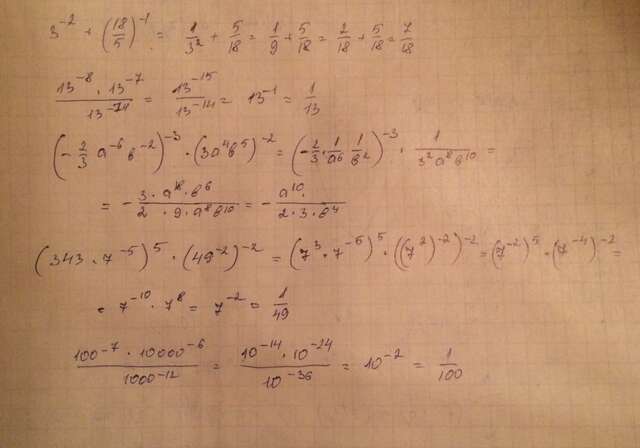 3⁻² + (18/5)⁻¹ = 1/3² + 5/18 = 1/9 + 5/18 = 2/18 + 5/18 = 7/18
13⁻⁸ · 13⁻⁷ / 13⁻¹⁴ = 13⁻¹⁵ / 13⁻¹⁴ = 13⁻¹ = 1/13
(-2/3 a⁻⁶ b⁻²)⁻³ · (3a⁴b⁵)⁻² = (-2/3 · 1/a⁶ 1/b²)⁻³ · 1/3²a⁸b¹⁰ =
= - 3 · a¹⁸ · b⁶ / 2 · 9 · a⁸b¹⁰ = - a¹⁰ / 2 · 3 · b⁴
(343 · 7⁻⁵)⁵ · (49⁻²)⁻² = (7³ · 7⁻⁵)⁵ · ((7²)⁻²)⁻² = (7⁻²)⁵ · (7⁻⁴)⁻² =
= 7⁻¹⁰ · 7⁸ = 7⁻² = 1/49
100⁻⁷ · 10000⁻⁶ / 1000⁻¹² = 10⁻¹⁴ · 10⁻²⁴ / 10⁻³⁶ = 10⁻² = 1/100